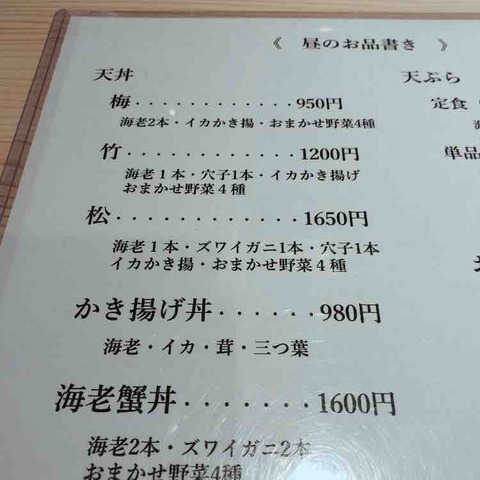 《 昼のお品書き 》
天丼
梅・・・・・・・・・・・・950円
海老2本・イカかき揚・おまかせ野菜4種
竹・・・・・・・・・・・・1200円
海老１本・穴子1本・イカかき揚げ
おまかせ野菜４種
松・・・・・・・・・・・・1650円
海老１本・ズワイガニ1本・穴子1本
イカかき揚・おまかせ野菜４種
かき揚げ丼・・・・・・980円
海老・イカ・茸・三つ葉
海老蟹丼・・・・・・・1600円
海老2本・ズワイガニ2本
おまかせ野菜4種
天ぷら
定食（
単品